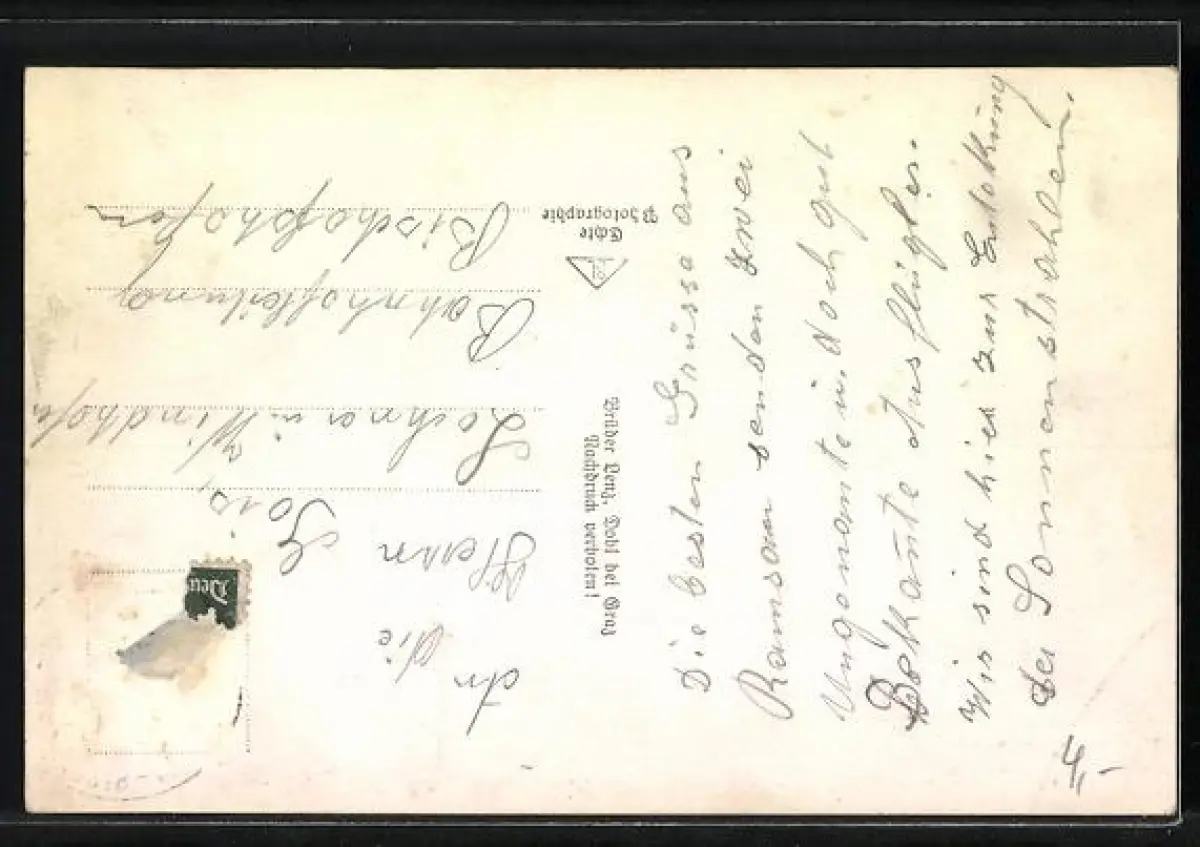 Die besten Grüsse aus
Ramsau senden zwei
Ungenannte u. doch gut
Bekannte Ausflügler.
Wir sind hier zur Entdekung
der Sonnenstrahlen.
4,-
Brüder Lenz, Dobl bei Graz
Nachdruck verboten!
Echte
Photographie
An die
Herrn
Lechner u. Windhofer
Bahnhofleitung
Bischofshofen
Deu